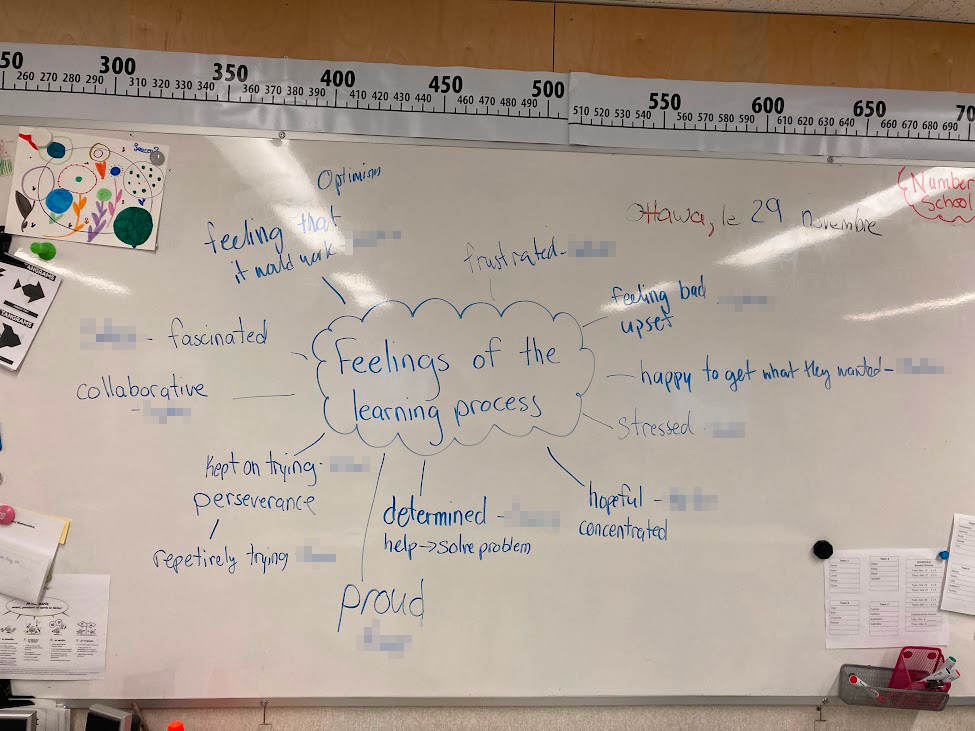 50 260 270 280 290 300 310 320 330 340 350 360 370 380 390 400 410 420 430 440 450 460 470 480 490 500 510 520 530 540 550 560 570 580 590 600 610 620 630 640 650 660 670 680 690 70
Optimism
feeling that
it would work
frustrated-
Ottawa, le 29 novembre
Number
School
feeling bad
upset
- fascinated
Feelings of the
learning process
happy to get what they wanted-
collaborative
-
stressed
kept on trying-
perseverance
repetirely trying
determined -
help->solve problem
hopeful -
concentrated
proud
TANGRAMS
TANGRAMS